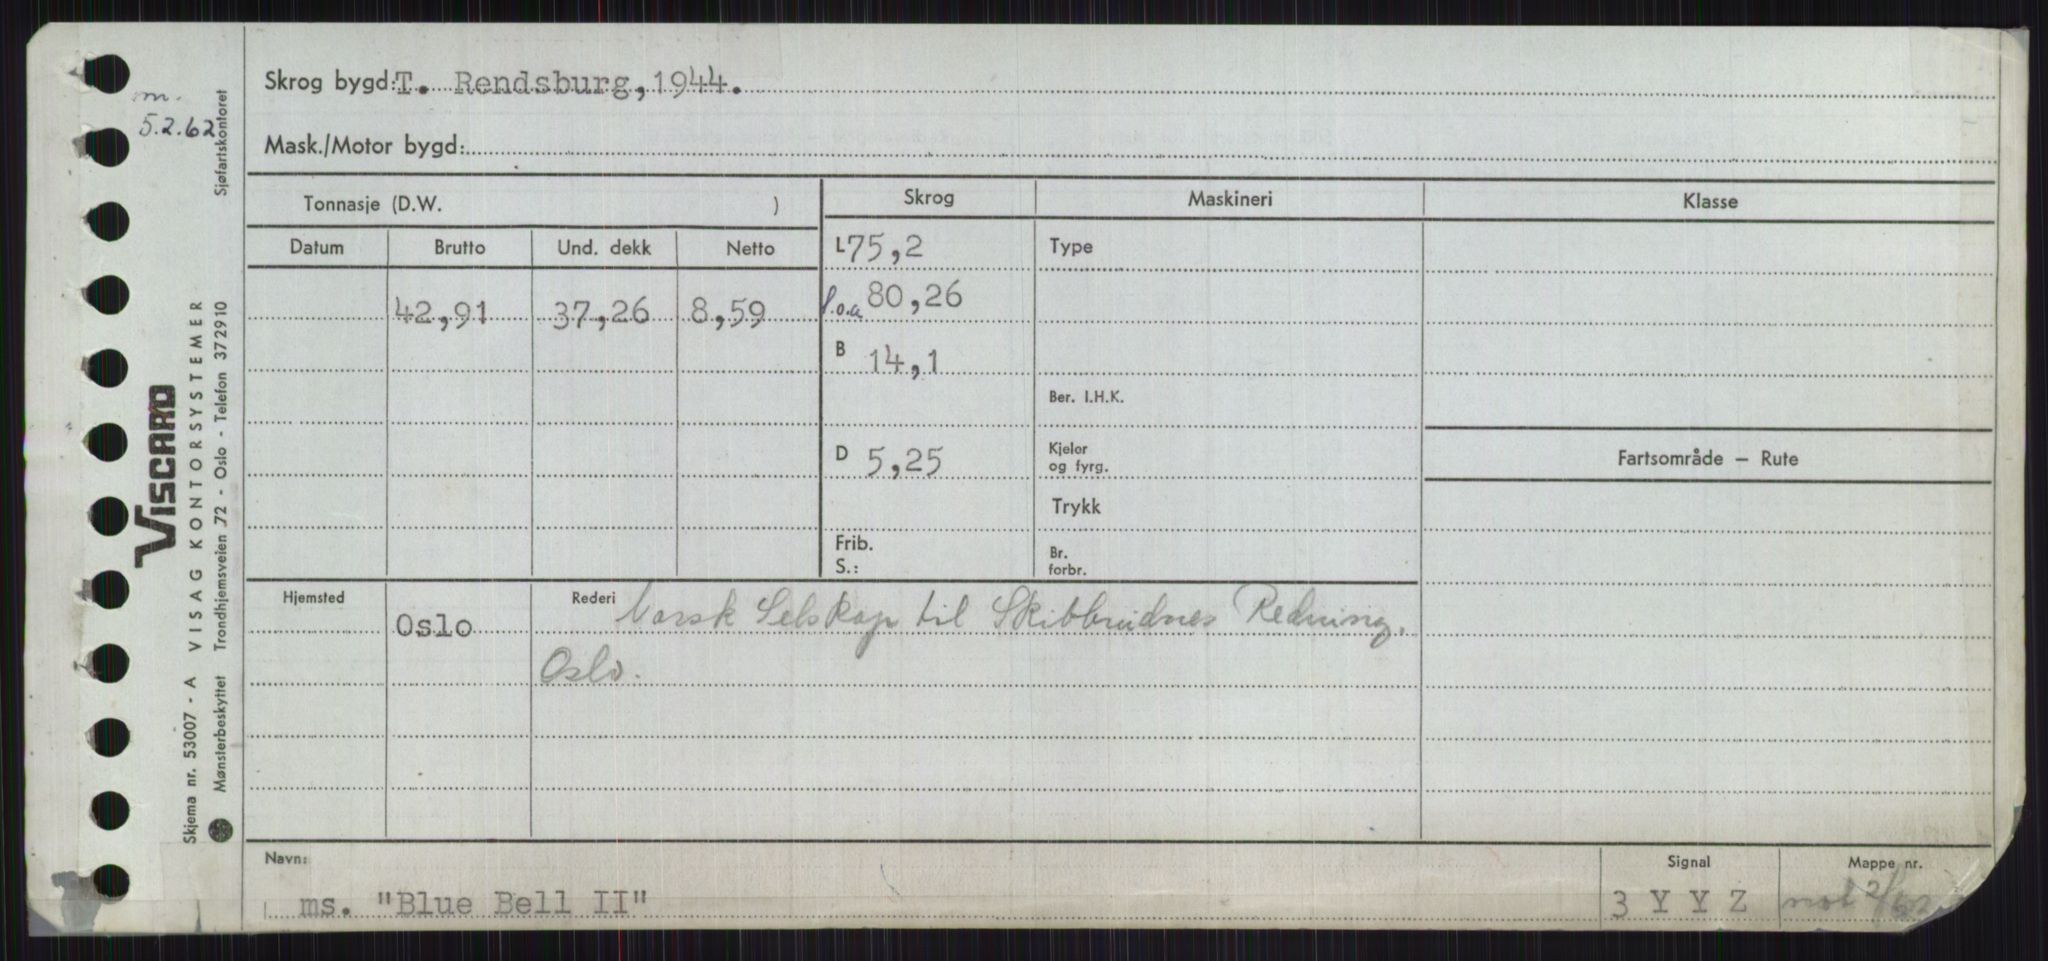 m.
5.2.62
Skrog bygd: T. Rendsburg, 1944.
Mask./Motor bygd:
Tonnasje (D.W. )
Skrog
Maskineri
Klasse
Datum
Brutto
Und. dekk
Netto
L 75,2
Type
42,91
37,26
8,59
l.o.a 80,26
B 14,1
Ber. I.H.K.
D 5,25
Kjeler
og fyrg.
Fartsområde – Rute
Trykk
Frib.
S.:
Br.
forbr.
Hjemsted
Oslo
Rederi Norsk Selskap til Skibbrudnes Redning,
Oslo.
Navn:
ms. "Blue Bell II"
Signal
3 Y Y Z
Mappe nr.
VISCARD
VISAG KONTORSYSTEMER
Skjema nr. 53007 - A
Mønsterbeskyttet Trondhjemsveien 72 - Oslo - Telefon 372910
Sjøfartskontoret